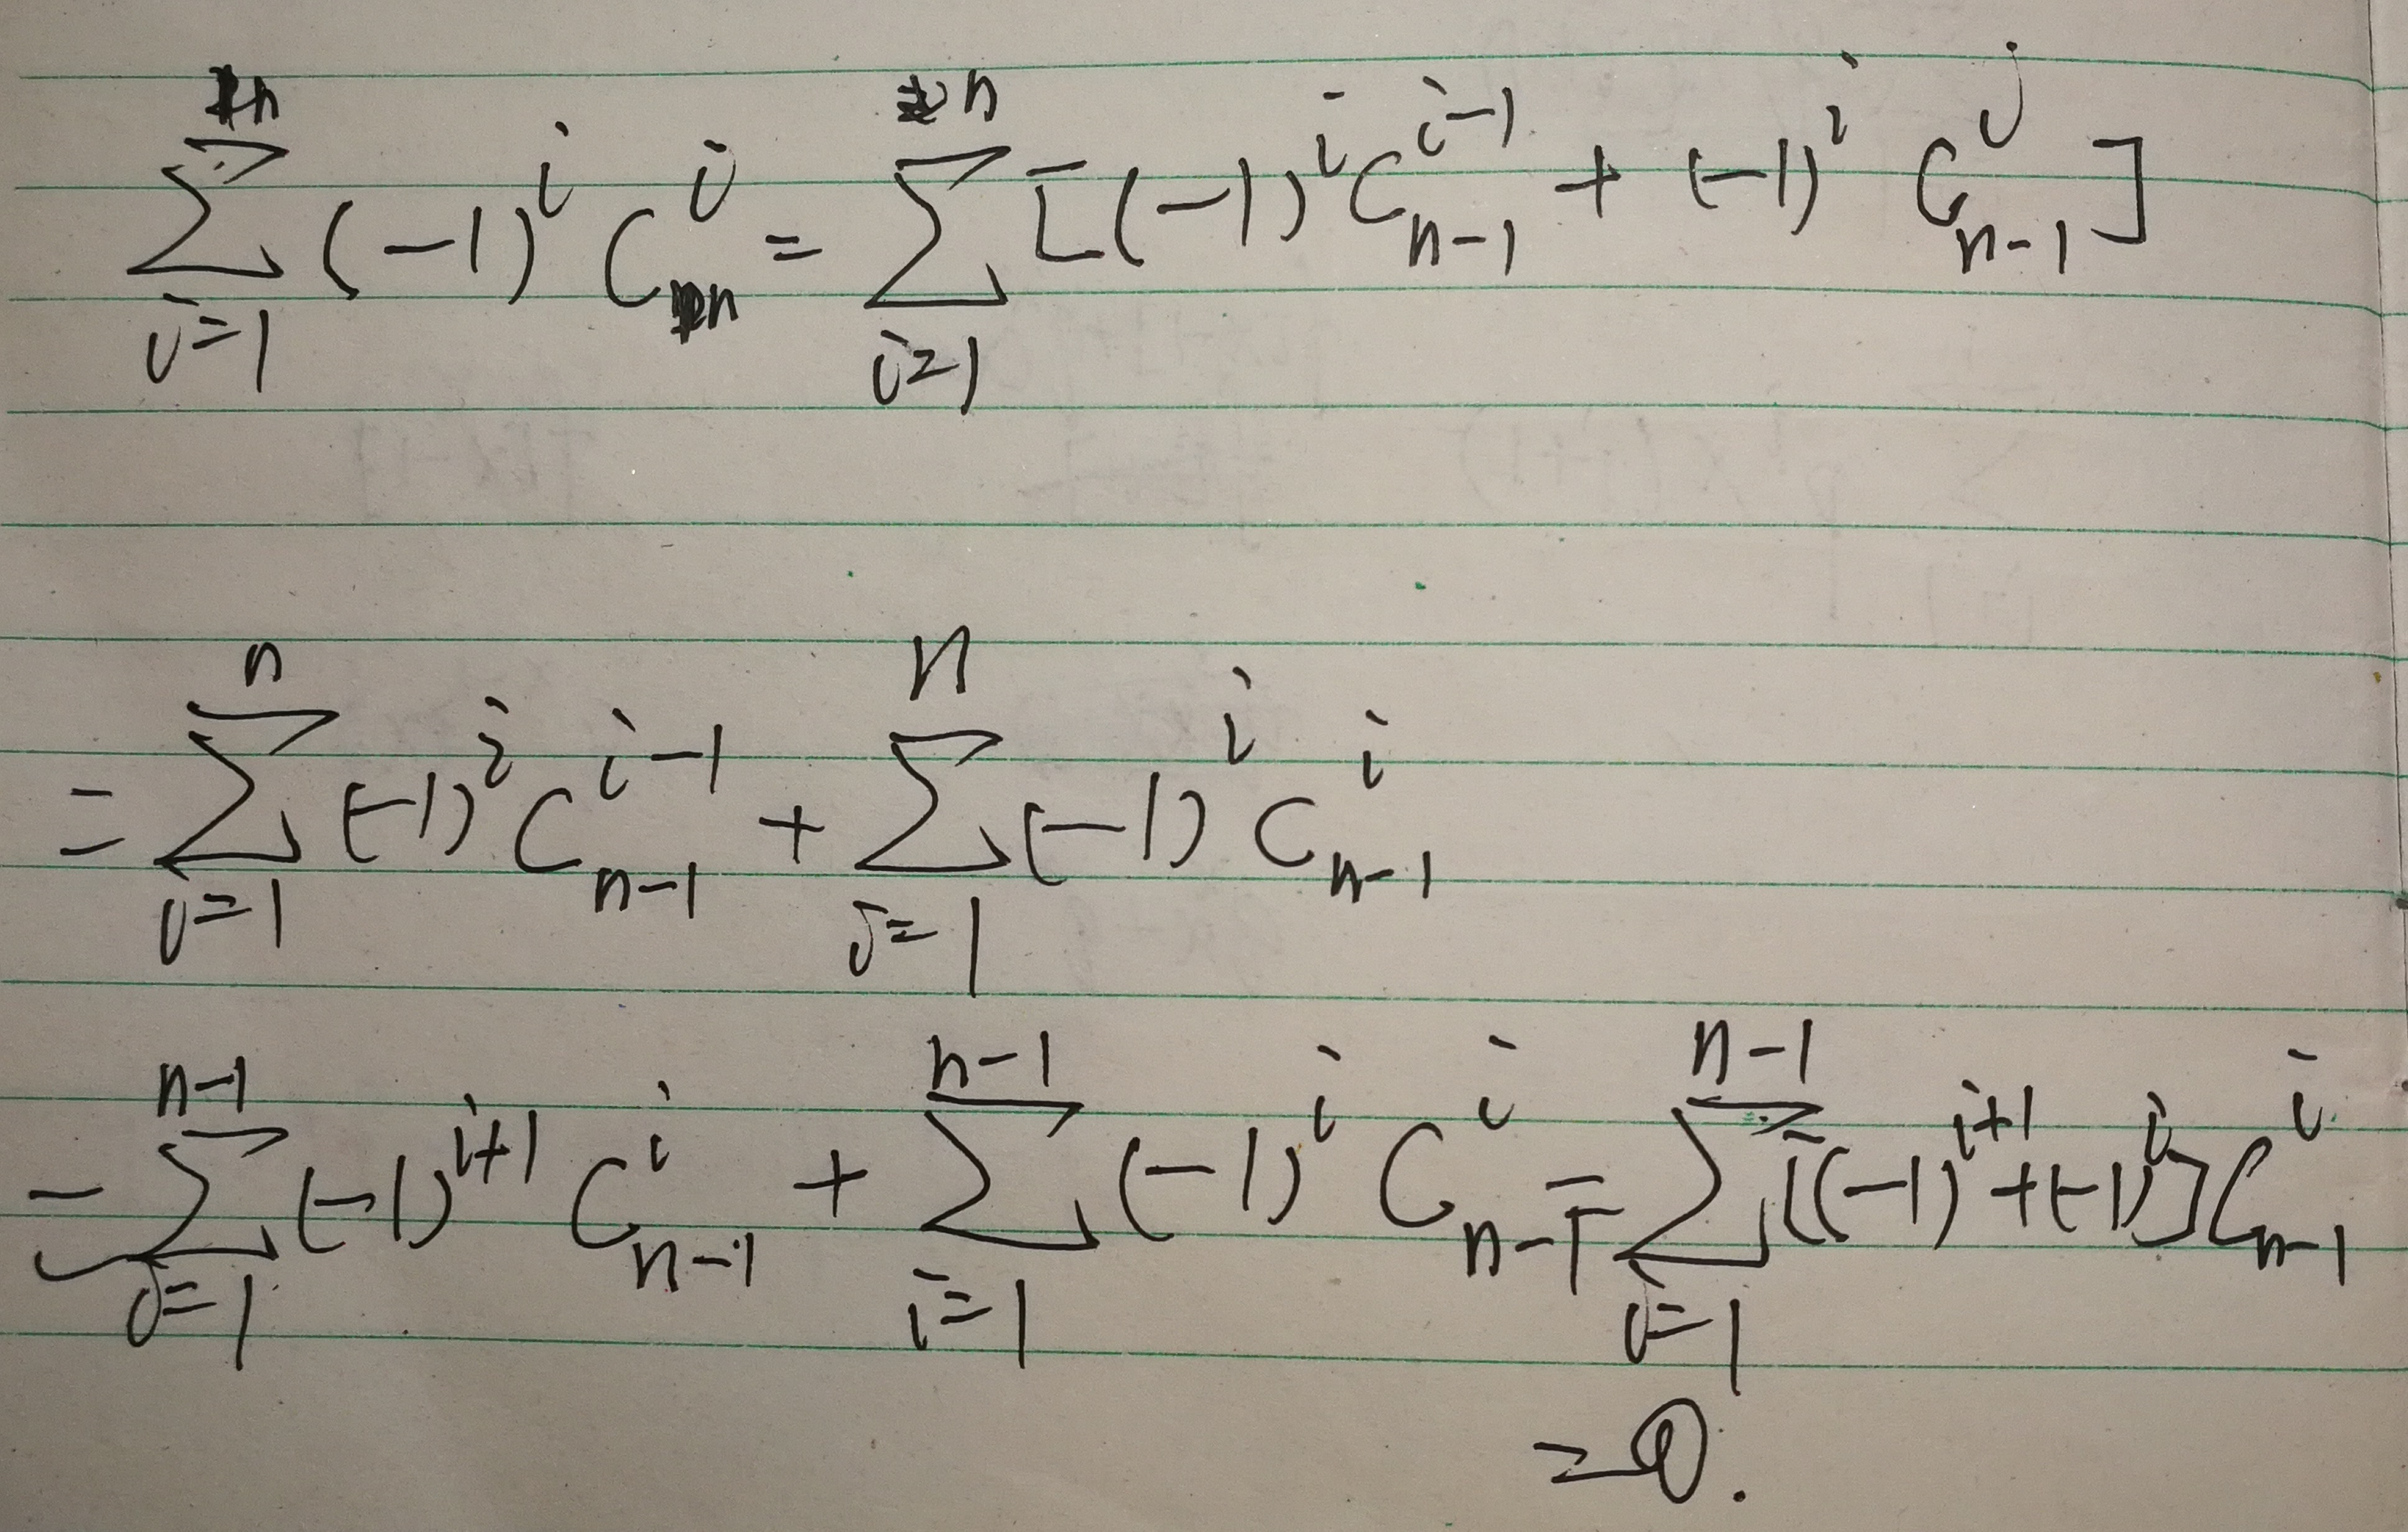 \sum_{i=1}^{n} (-1)^{i} C_{n}^{i} = \sum_{i=1}^{n} [(-1)^{i} C_{n-1}^{i-1} + (-1)^{i} C_{n-1}^{i}]
= \sum_{i=1}^{n} (-1)^{i} C_{n-1}^{i-1} + \sum_{i=1}^{n} (-1)^{i} C_{n-1}^{i}
= \sum_{i=1}^{n-1} (-1)^{i+1} C_{n-1}^{i} + \sum_{i=1}^{n-1} (-1)^{i} C_{n-1}^{i} = \sum_{i=1}^{n-1} [(-1)^{i+1} + (-1)^{i}] C_{n-1}^{i}
= 0.